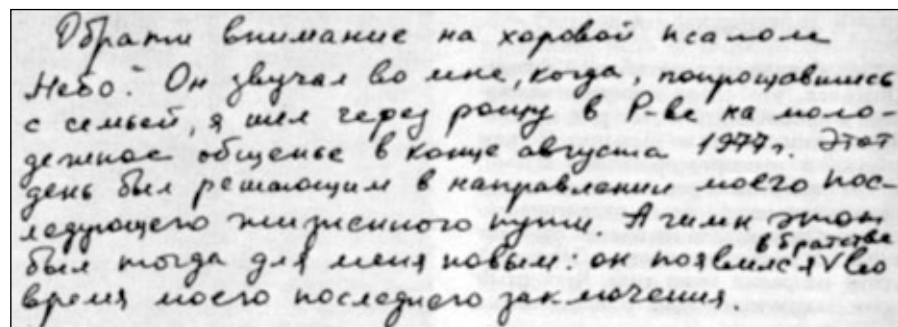 Обрати внимание на хоровой псалом
"Небо". Он звучал во мне, когда, попрощавшись
с семьей, я шел через рощу в Р-ве на моло-
дежное общенье в конце августа 1977 г. Этот
день был решающим в направлении моего пос-
ледующего жизненного пути. А гимн этот
был тогда для меня новым: он появился в братстве во
время моего последнего заключения.